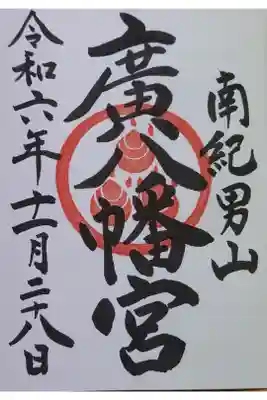 南紀男山
廣八幡宮
令和六年十一月二十八日